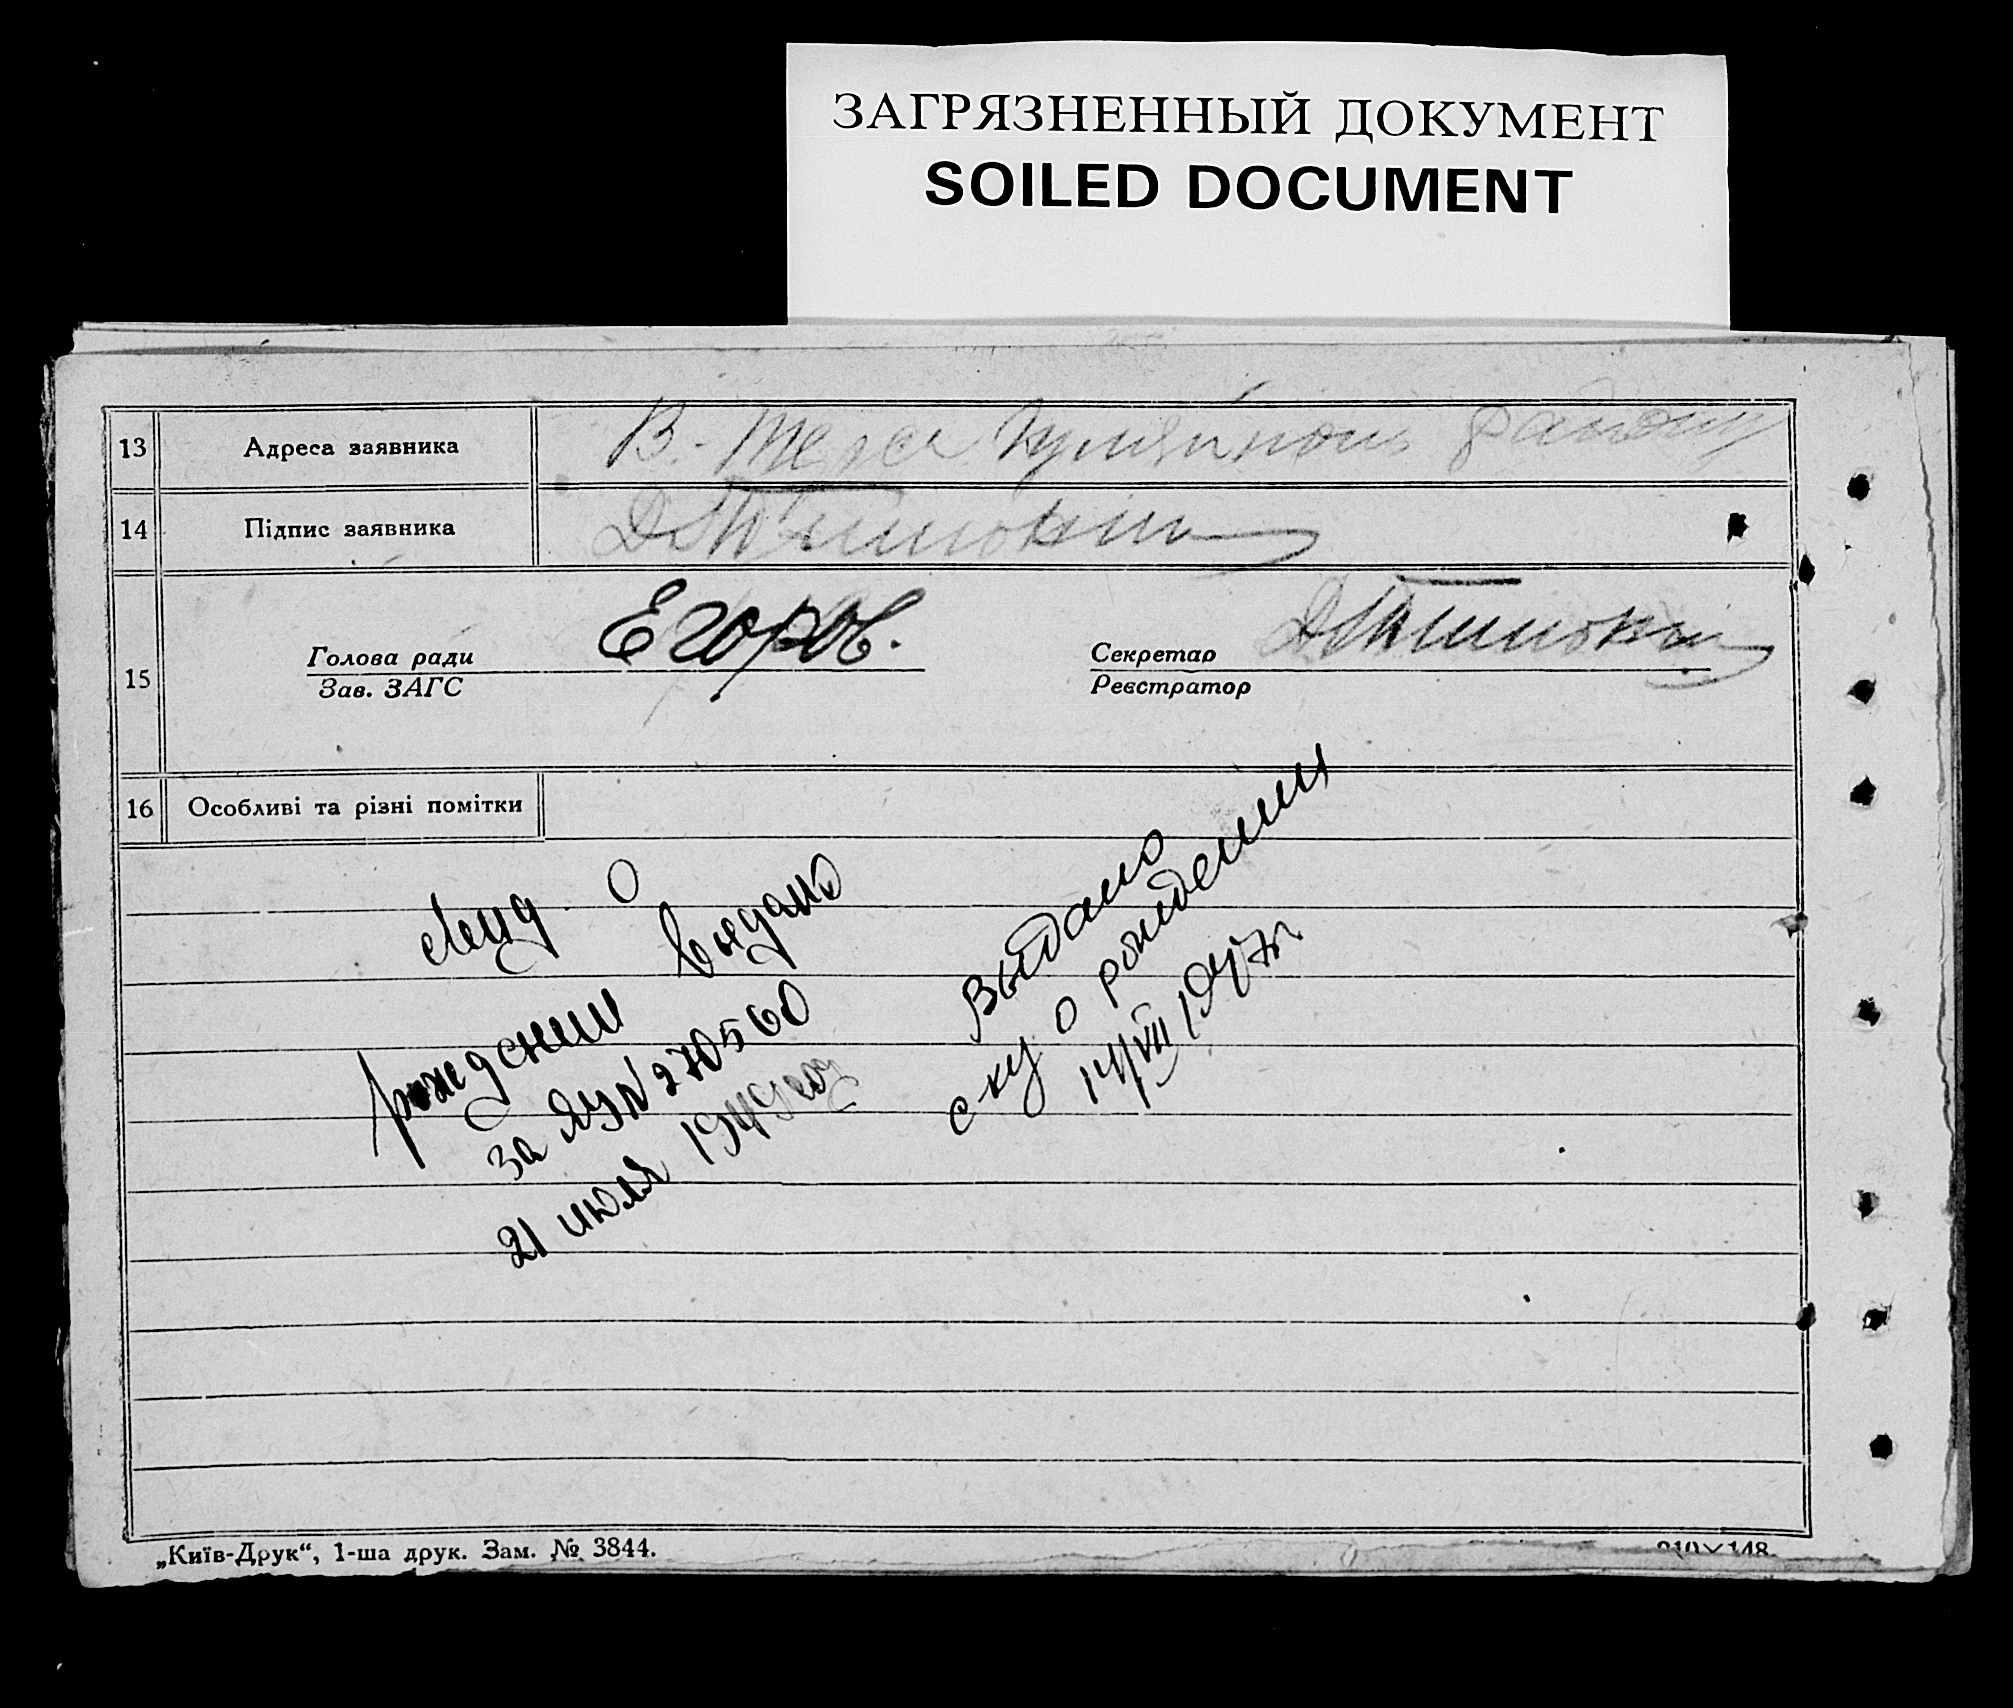 ЗАГРЯЗНЕННЫЙ ДОКУМЕНТ
SOILED DOCUMENT
13 Адреса заявника В.-Терса району
14 Підпис заявника
15 Голова ради Егоров. Секретар
Зав. ЗАГС Реєстратор
16 Особливі та різні помітки
о
рождении выдано
за ЯУ № 270560
21 июля 1949 году
Выдано
с-ку о рождении
14/VIII 1947 г.
„Київ-Друк“, 1-ша друк. Зам. № 3844.
210×148.